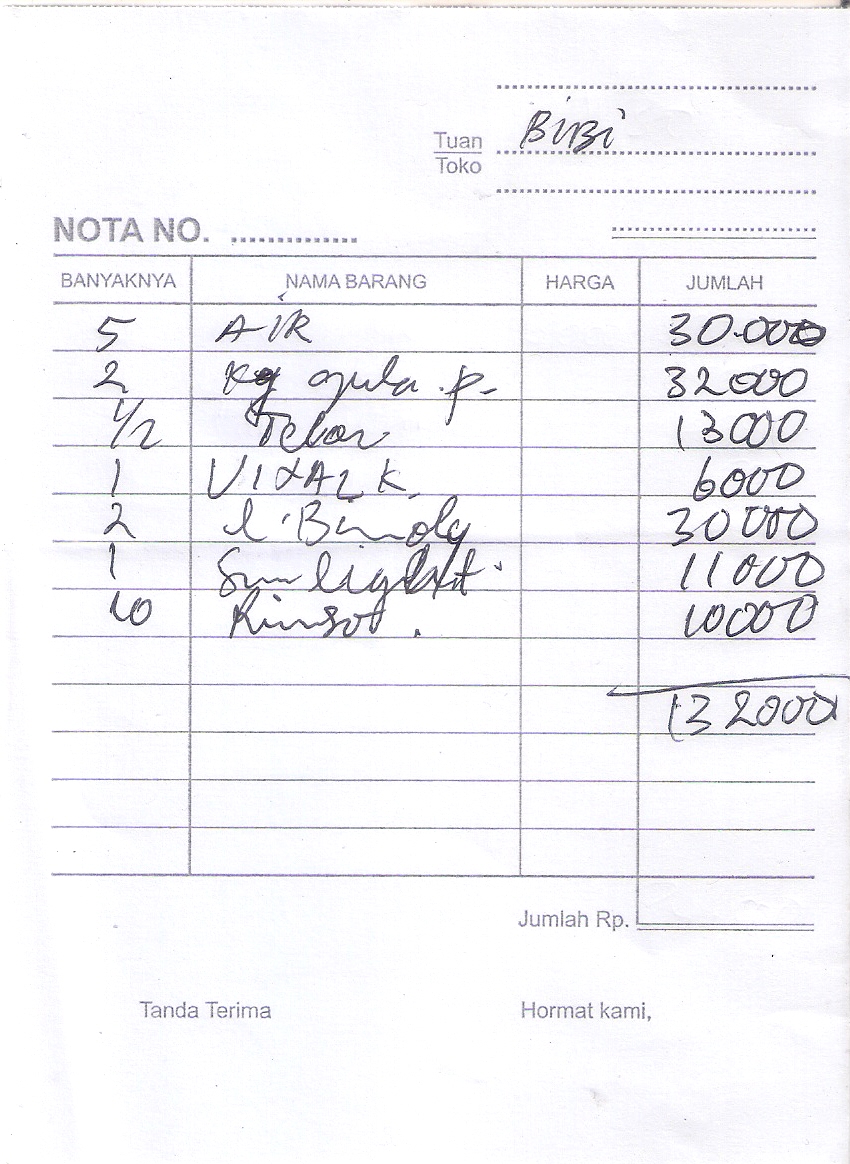 Tuan BiBi
Toko
NOTA NO. ..............
BANYAKNYA NAMA BARANG HARGA JUMLAH
5 AIR 30.000
2 Kg gula .p- 32000
1/2 Telor 13000
1 6000
2 l. 30000
1 Sunlight. 11000
10 Rinso . 10000
132000
Jumlah Rp.
Tanda Terima Hormat kami,